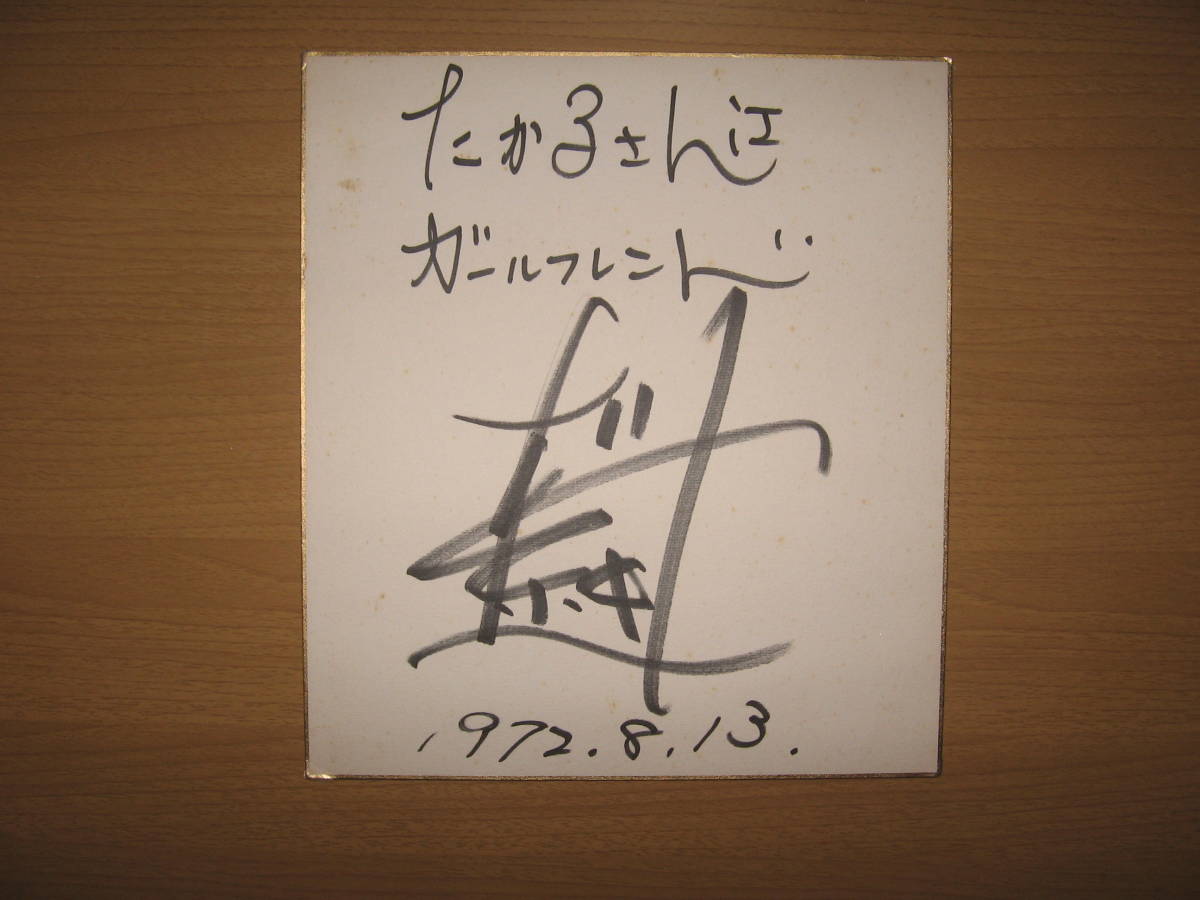 たかるさん江
ガールフレンド
1972.8.13.